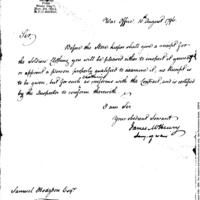 War Office 10 August 1796
Sir,
Before the Store keeper shall give a receipt for
the Soldiers Clothing you will be pleased either to inspect it yourself
or appoint a person properly qualified to examine it, no Receipt is
to be given, but for such clothing as conforms with the Contract, and is certified
by the Inspector to conform therewith.
I am Sir
Your obedient Servant
James McHenry
Secy of war
Samuel Hodgdon Esqr